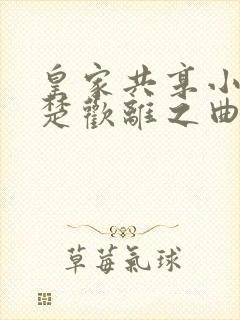 皇家共享小
楚歡離之曲
草莓氣球